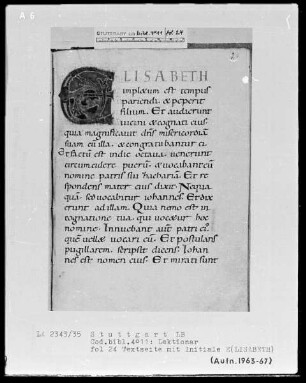 A 6
STUTTGART LB bibl. 4°11 fol. 24
24
ELISABETH
impletum est tempus
pariendi. & peperit
filium. Et audierunt
uicini & cognati eius.
quia magnificauit dns misericordiam
suam cu illa. & congratulabantur ei
Et factu est in die octaua. uenerunt
circumcidere pueru. & uocabant eu
nomine patris sui zacharia. Et re
spondens mater eius dixit. Nequa
qua. sed uocabitur iohannes. Et dix
erunt ad illam. Quia nemo est in
cognatione tua. qui uocetur hoc
nomine. Innuebant aut patri ei
que uellet uocari eu. Et postulans
pugillarem. scripsit dicens. Iohan
nes est nomen eius. Et mirati sunt
La 2343/35 Stuttgart LB
Cod.bibl.4°11: Lektionar
fol 24 Textseite mit Initiale E(LISABETH)
(Aufn.1963-67)